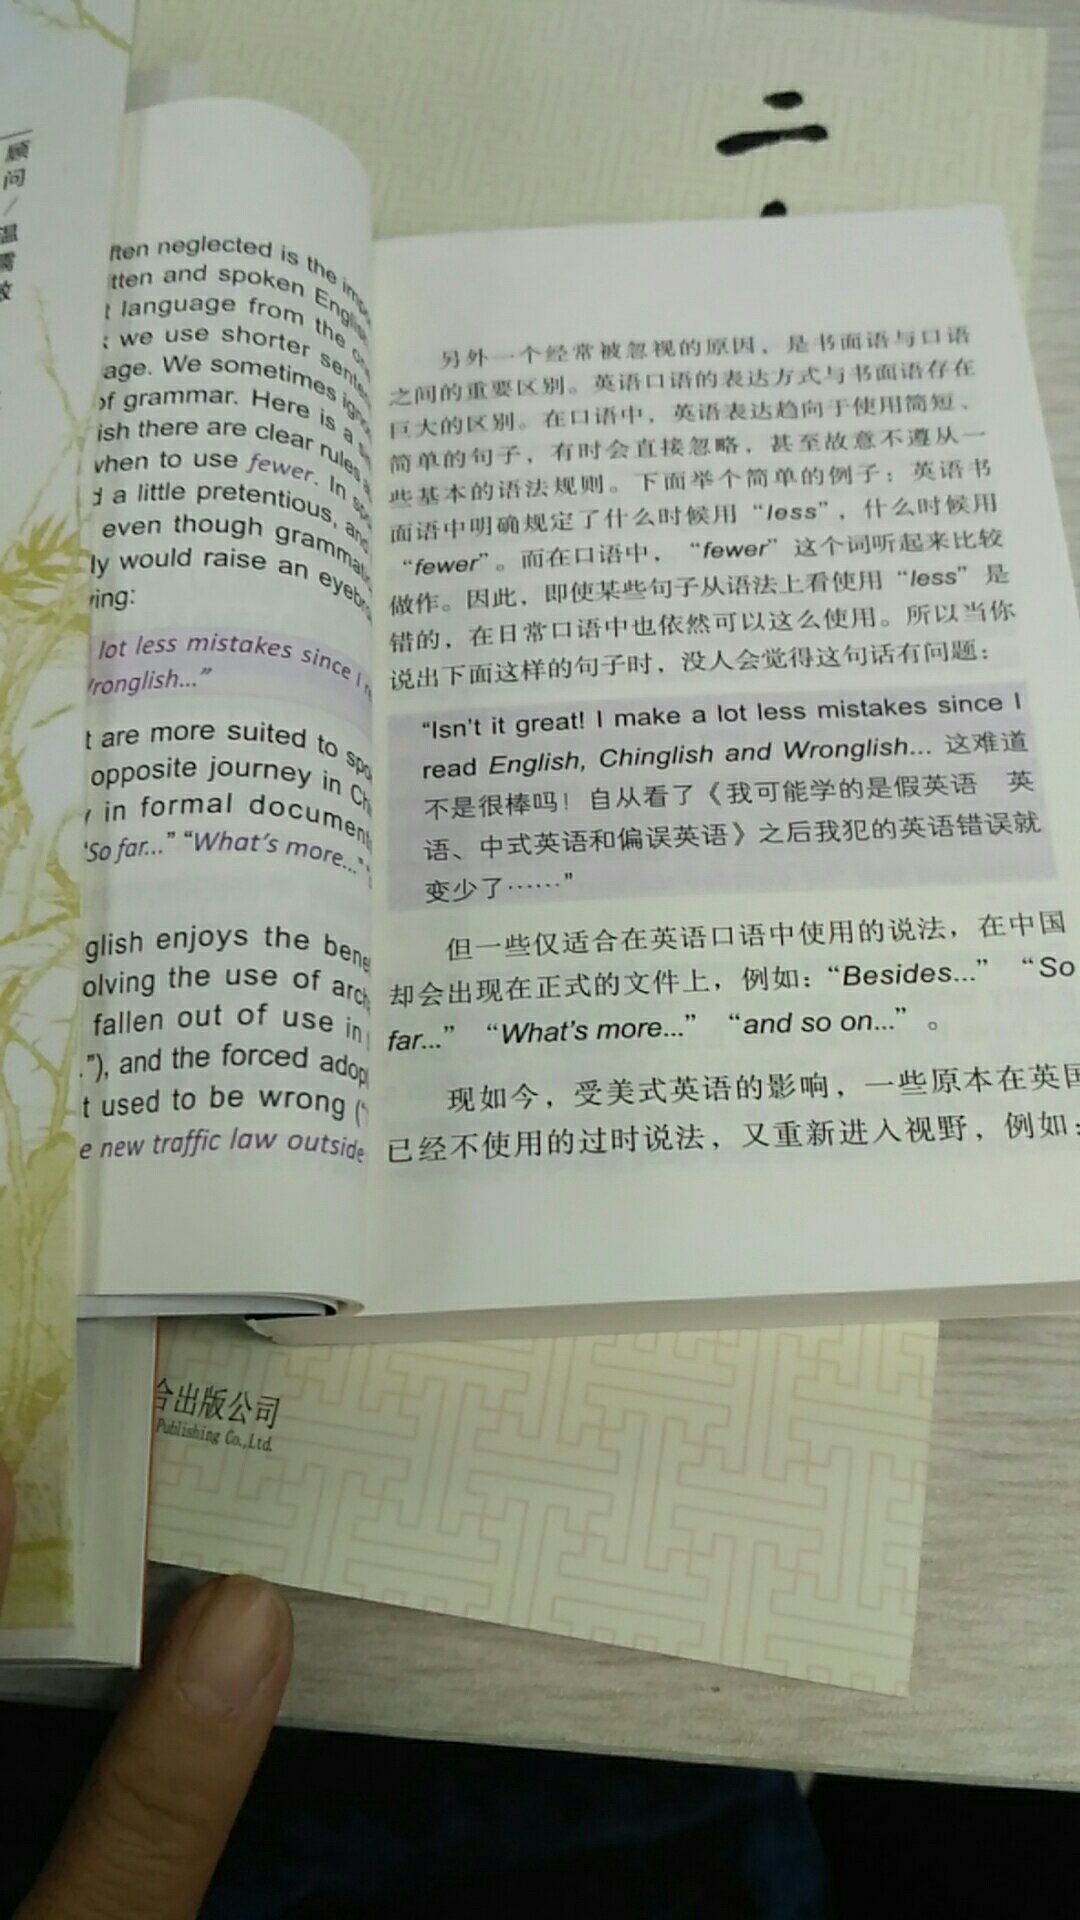 顾
问
/
温
二
ften neglected is the
tten and spoken
language from the
we use shorter
age. We sometimes
of grammar. Here is a
ish there are clear rules
when to use fewer. In
d a little pretentious, and
even though
ly would raise an
ring:
lot less mistakes since I
Wronglish..."
t are more suited to
opposite journey in
in formal
"So far..." "What's more..."
glish enjoys the
olving the use of
fallen out of use in
."), and the forced
t used to be wrong
e new traffic law outside
另外一个经常被忽视的原因，是书面语与口语
之间的重要区别。英语口语的表达方式与书面语存在
巨大的区别。在口语中，英语表达趋向于使用简短、
简单的句子，有时会直接忽略，甚至故意不遵从一
些基本的语法规则。下面举个简单的例子：英语书
面语中明确规定了什么时候用“less”，什么时候用
“fewer”。而在口语中，“fewer”这个词听起来比较
做作。因此，即使某些句子从语法上看使用“less”是
错的，在日常口语中也依然可以这么使用。所以当你
说出下面这样的句子时，没人会觉得这句话有问题：
“Isn't it great! I make a lot less mistakes since I
read English, Chinglish and Wronglish... 这难道
不是很棒吗！自从看了《我可能学的是假英语 英
语、中式英语和偏误英语》之后我犯的英语错误就
变少了……”
但一些仅适合在英语口语中使用的说法，在中国
却会出现在正式的文件上，例如：“Besides...” “So
far...” “What's more...” “and so on...”。
现如今，受美式英语的影响，一些原本在英国
已经不使用的过时说法，又重新进入视野，例如：
合出版公司
Publishing Co.,Ltd.